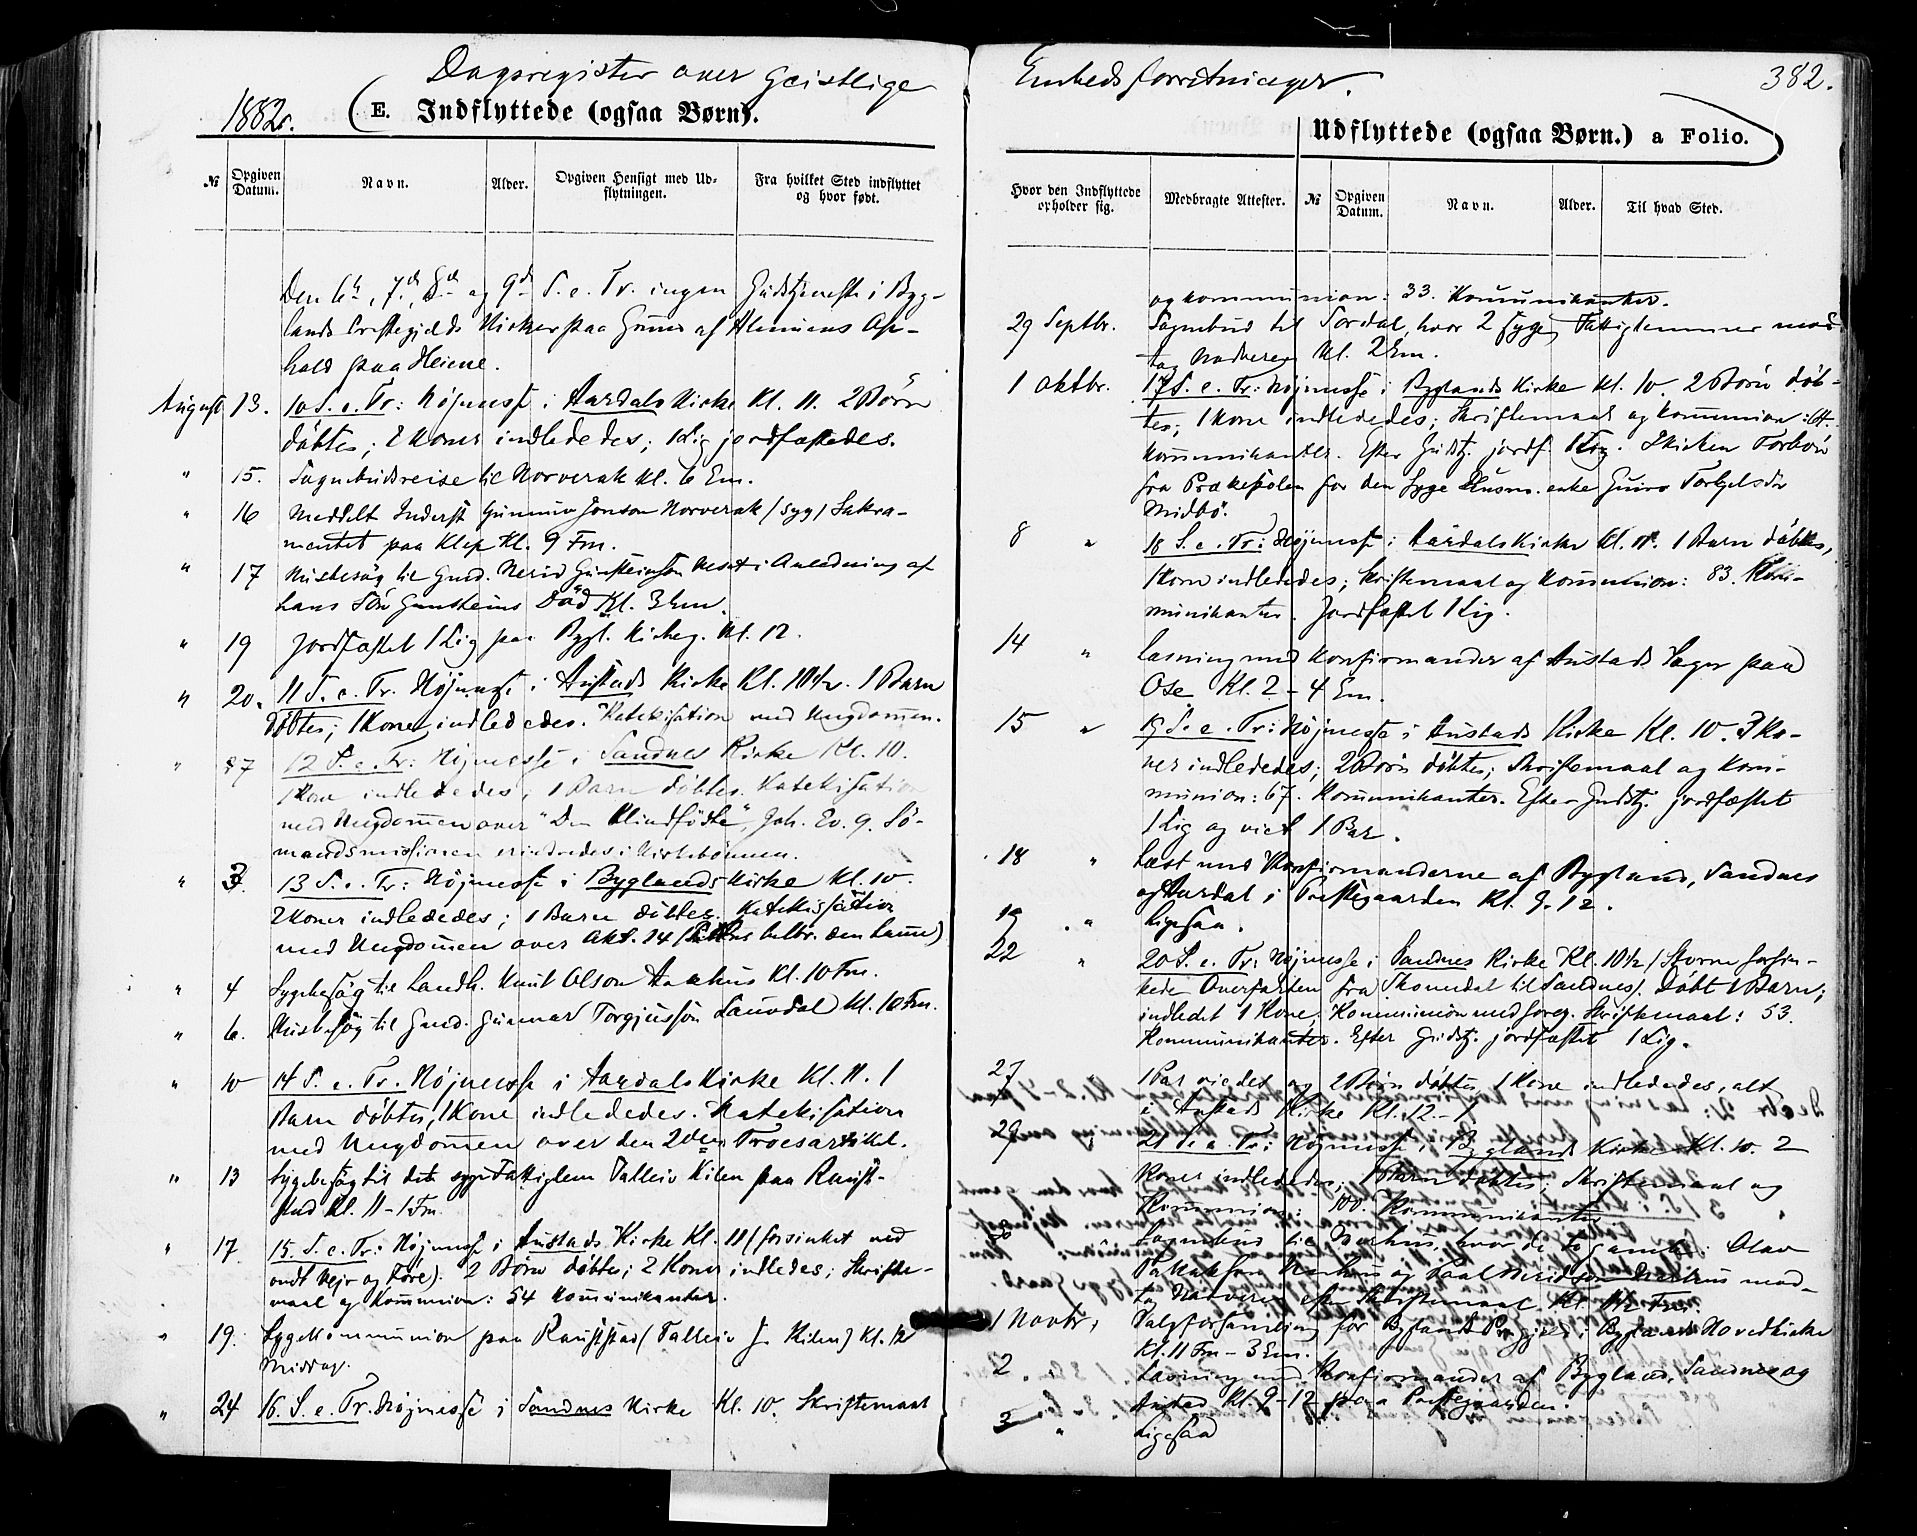 Dagsregister over Geistlige
1882.
E. Indflyttede (ogsaa Børn).
№
Opgiven Datum.
Navn.
Alder.
Opgiven Hensigt med Udflytningen.
Fra hvilket Sted indflyttet og hvor født.
Den 6te, 7de, 8de og 9de S. e. Tr. ingen Gudstjeneste i Byg-
lands Præstegjælds Kirker paa Grund af Almuens Op-
hold paa Heiene.
August 13. 10 S. e. Tr: Højmesse i Aardals Kirke Kl. 11. 2 Børn
döbtes; 2 Koner indlededes; 1 Lig jordfæstedes.
" 15. Sognebudsreise til Horverak Kl. 6 Em.
" 16 Meddelt Inderst Gunnuv Jonson Horverak (syg) Sakra-
mentet paa Klep Kl. 9 Fm.
" 17 Husbesøg til Gmd. Nerid Gunsteinsön i Anledning af
hans Sön Gunsteins Död Kl. 3 Em.
" 19 Jordfæstet 1 Lig paa Bygl. Kirkeg. Kl. 12.
" 20. 11 S. e. Tr. Højmesse i Austads Kirke Kl. 10½. 1 Barn
Döbtes; 1 Kone indlededes. Katekisation med Ungdommen.
" 27 12 S. e. Tr: Højmesse i Sandnes Kirke Kl. 10.
1 Kone indlededes; 1 Barn döbtes. Katekisation
med Ungdommen over "Den Blindfödte", Joh. Ev. 9. Sö-
mandsmissionen erindredes i Kirkebönnen.
" 3. 13 S. e. Tr: Højmesse i Byglands Kirke Kl. 10.
2 Koner indlededes; 1 Barn döbtes. Katekisation
med Ungdommen over Akt. 14 (Paulus helbr. den Lamme)
" 4 Sygebesög til Landh. Knut Olson Aakhus Kl. 10 Fm.
" 6. Husbesög til Gmd. Gunnar Torgjusson Lauvdal Kl. 10 Fm.
" 10 14 S. e. Tr. Højmesse i Aardals Kirke Kl. 11. 1
Barn döbtes, 1 Kone indlededes. Katekisation
med Ungdommen over den 2den Troesartikel.
" 13 Sygebesög til det syge Fattiglem Talleiv Kilen paa Raust-
stad Kl. 11 - 1 Fm.
" 17. 15. S. e. Tr: Højmesse i Austads Kirke Kl. 11 (forsinket ved
ondt Vejr og Före). 2 Börn döbtes; 2 Koner indledes; Skrifte-
maal og Kommunion: 54 Kommunikanter.
" 19. Sygekommunion paa Rauststad (Talleiv J. Kilen) Kl. 12
Middag.
" 24 16. S. e. Tr. Højmesse i Sandnes Kirke Kl. 10. Skriftemaal
Embedsforretninger.
382.
Udflyttede (ogsaa Børn.) a Folio.
Hvor den Indflyttede opholder sig.
Medbragte Attester.
№
Opgiven Datum.
Navn.
Alder.
Til hvad Sted.
og Kommunion: 33. Kommunikanter.
29 Septbr. Sognebud til Sordal, hvor 2 syge Fattiglemmer mod-
tog Nadveren Kl. 2 Em.
1 Oktbr. 17 S. e. Tr: Højmesse i Byglands Kirke Kl. 10. 2 Börn döb-
tes; 1 Kone indlededes; Skriftemaal og Kommunion:
Kommunikanter. Efter Gudstj. jordf. 1 Lig. Skicken Forbön
fra Prækestolen for den syge Husm. enke Guro Torkjelsdtr
Midbö.
8 " 18 S. e. Tr: Højmesse i Aardals Kirke Kl. 11. 1 Barn döbtes,
1 Kone indlededes; Skriftemaal og Kommunion: 83. Kom-
munikanter. Jordfæstet 1 Lig.
14 " Læsning med Konfirmander af Austads Sogn paa
Ose Kl. 2 - 4 Em.
15 " 19 S. e. Tr: Højmesse i Austads Kirke Kl. 10. 3 Ko-
ner indlededes; 2 Börn döbtes; Skriftemaal og Kom-
munion: 67. Kommunikanter. Efter Gudstj. jordfæstet
1 Lig og viet 1 Par.
18 " Læst med Konfirmanderne af Bygland, Sandnes
og Aardal i Præstegaarden Kl. 9-12.
19 " Ligesaa.
22 " 20 S. e. Tr: Højmesse i Sandnes Kirke Kl. 10½ (Storm forsin-
kede Overfarten fra Skomedal til Sandnes). Döbt 1 Barn;
indledet 1 Kone. Kommunion med foreg. Skriftemaal: 53.
Kommunikanter. Efter Gudstj. jordfæstet 1 Lig.
27 1 Par viedet og 2 Börn döbtes, 1 Kone indlededes, alt
i Austads Kirke Kl. 12 - 1
29 21 S. e. Tr: Højmesse i Byglands Kirke Kl. 10. 2
Koner indlededes; 1 Barn döbtes; Skriftemaal og
Kommunion: 100. Kommunikanter
Sognebud til hvor de to gamle: Olav
og mod-
tog Nadveren efter Skriftemaal Kl. Fm.
1 Novbr. Valgforsamling for Byglands Prgjæld i Byglands Hovedkirke
Kl. 11 Fm - 3 Em.
2 " Læsning med Konfirmander af Bygland, Sandnes og
Austad Kl. 9-12 paa Præstegaarden.
3 " Ligesaa